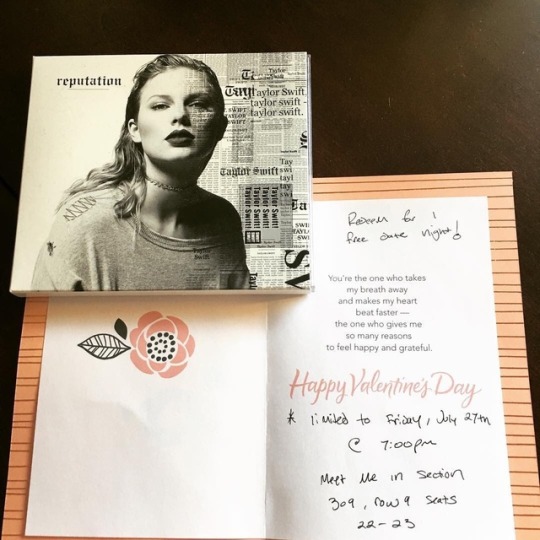 reputation
Taylor Swift
taylor swift -
taylor swift.
Taylor Swift
Redeem for 1
free date night!
You're the one who takes
my breath away
and makes my heart
beat faster —
the one who gives me
so many reasons
to feel happy and grateful.
Happy Valentine's Day
* limited to Friday, July 27th
@ 7:00pm
Meet Me in Section
309, row 9 seats
22-23